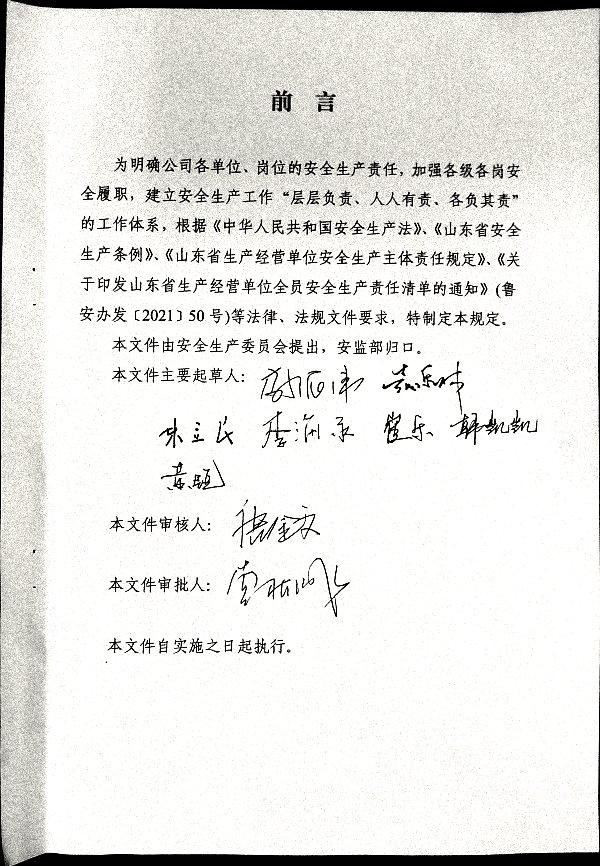 前 言
为明确公司各单位、岗位的安全生产责任，加强各级各岗安
全履职，建立安全生产工作“层层负责、人人有责、各负其责”
的工作体系，根据《中华人民共和国安全生产法》、《山东省安全
生产条例》、《山东省生产经营单位安全生产主体责任规定》、《关
于印发山东省生产经营单位全员安全生产责任清单的通知》(鲁
安办发〔2021〕50号)等法律、法规文件要求，特制定本规定。
本文件由安全生产委员会提出，安监部归口。
本文件主要起草人：
朱立民 崔乐 韩凯凯
本文件审核人：
本文件审批人：
本文件自实施之日起执行。